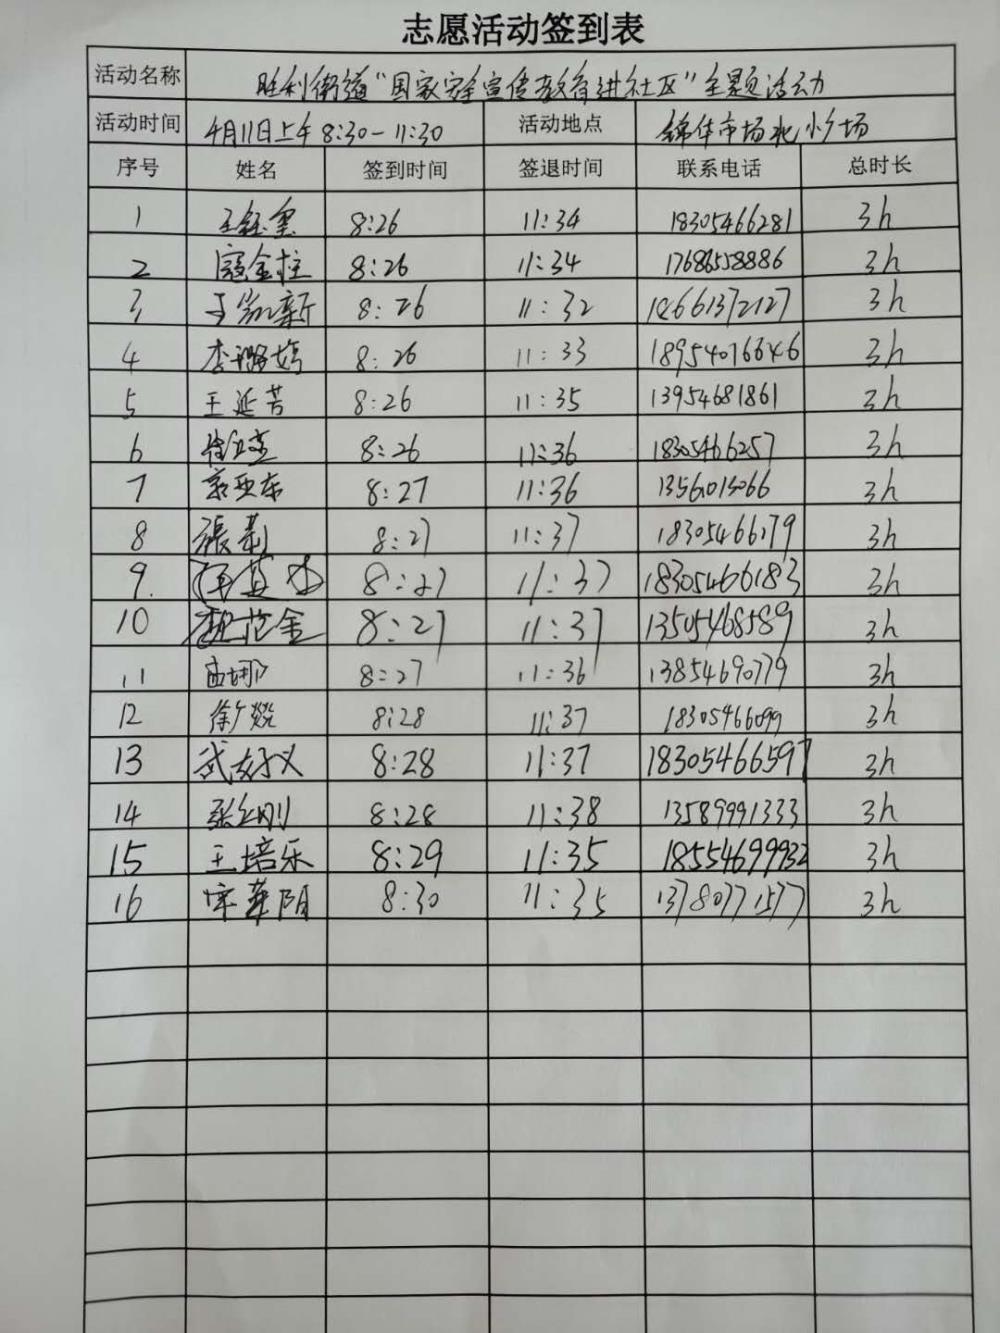 志愿活动签到表
活动名称 胜利街道“国家安全宣传教育进社区”主题活动
活动时间 4月11日上午 8:30-11:30 活动地点 锦华市场北小广场
序号 姓名 签到时间 签退时间 联系电话 总时长
1 8:26 11:34 18305466281 3h
2 寇金柱 8:26 11:34 17686558886 3h
3 于凯新 8:26 11:32 14661372127 3h
4 李璐婷 8:26 11:33 18954076646 3h
5 王延芳 8:26 11:35 13954681861 3h
6 8:26 11:36 18305466257 3h
7 8:27 11:36 13561013066 3h
8 張莉 8:27 11:37 18305466179 3h
9. 8:27 11:37 18305466183 3h
10 8:27 11:37 13505468589 3h
11 8:27 11:36 13854690779 3h
12 8:28 11:37 18305466099 3h
13 武好义 8:28 11:37 18305466597 3h
14 张红刚 8:28 11:38 13589991333 3h
15 王培乐 8:29 11:35 18554699932 3h
16 8:30 11:35 13780771577 3h